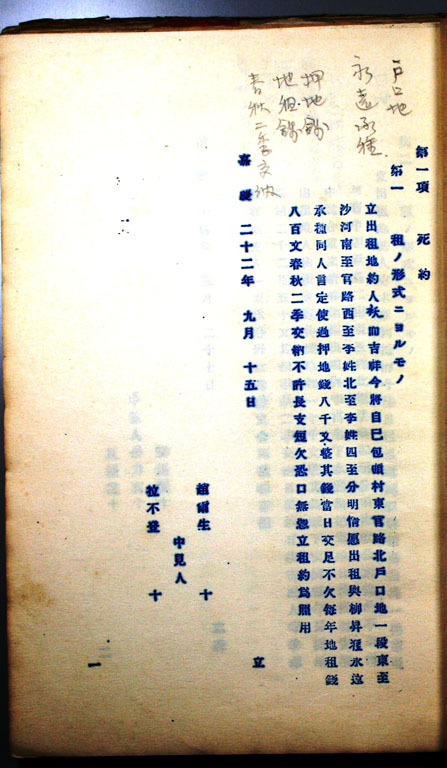 戸口地
永遠承種
押地錢
地租錢
春秋二季交納
第一項 死約
第一 租ノ形式ニヨルモノ
立出租地約人 吉祥今將自己包頭村東官路北戶口地一段東至
沙河南至官路西至李姓北至李姓四至分明情愿出租與柳昇 永遠
承種同人言定使過押地錢八千文整其錢當日交足不欠每年地租錢
八百文春秋二季交納不許長支短欠恐口無憑立租約爲照用
嘉慶二十二年 九月 十五日 立
趙爾生 十
中見人
拉不登 十
一